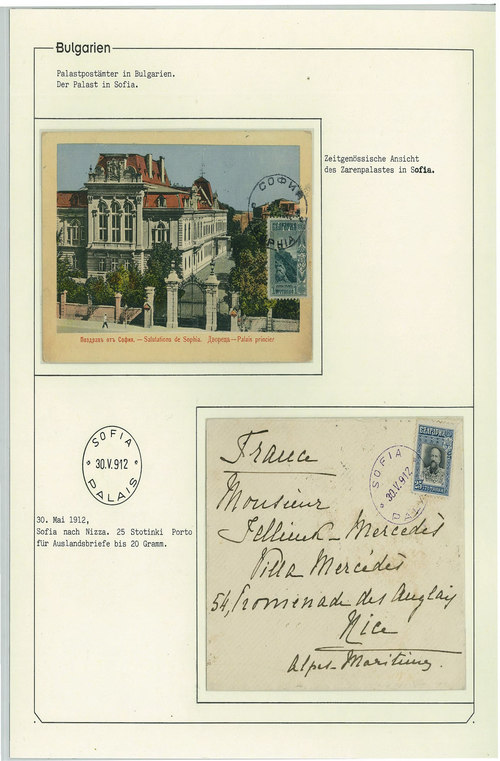 Bulgarien
Palastpostämter in Bulgarien.
Der Palast in Sofia.
Zeitgenössische Ansicht
des Zarenpalastes in Sofia.
СОФИЯ
БЪЛГАРИЯ
Поздравъ отъ София. — Salutations de Sophia. Двореца — Palais princier
SOFIA
30.V.912
PALAIS
30. Mai 1912,
Sofia nach Nizza. 25 Stotinki Porto
für Auslandsbriefe bis 20 Gramm.
БЪЛГАРИЯ
SOFIA
30.V.912
France
Monsieur
Jellinek-Mercédès
Villa Mercédès
54, Promenade des Anglais
Nice
Alpes-Maritimes.